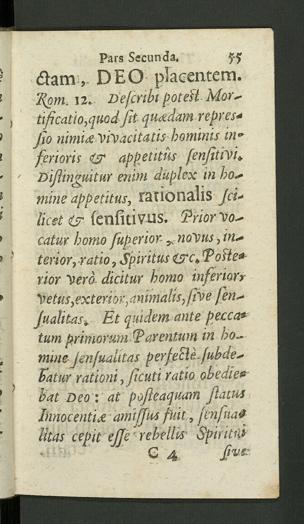 Pars Secunda. 55
ctam, DEO placentem.
Rom. 12. Describi potest Mor-
tificatio, quod sit quædam repres-
sio nimiæ vivacitatis hominis in-
ferioris & appetitûs sensitivi.
Distinguitur enim duplex in ho-
mine appetitus, rationalis sci-
licet & sensitivus. Prior vo-
catur homo superior, novus, in-
terior, ratio, Spiritus &c. Poste-
rior verò dicitur homo inferior,
vetus, exterior, animalis, sive sen-
sualitas. Et quidem ante pecca-
tum primorum Parentum in ho-
mine sensualitas perfectè subde-
batur rationi, sicuti ratio obedie-
bat DEO: at posteaquam status
Innocentiæ amissus fuit, sensua-
litas cepit esse rebellis Spiritui
C 4 sive